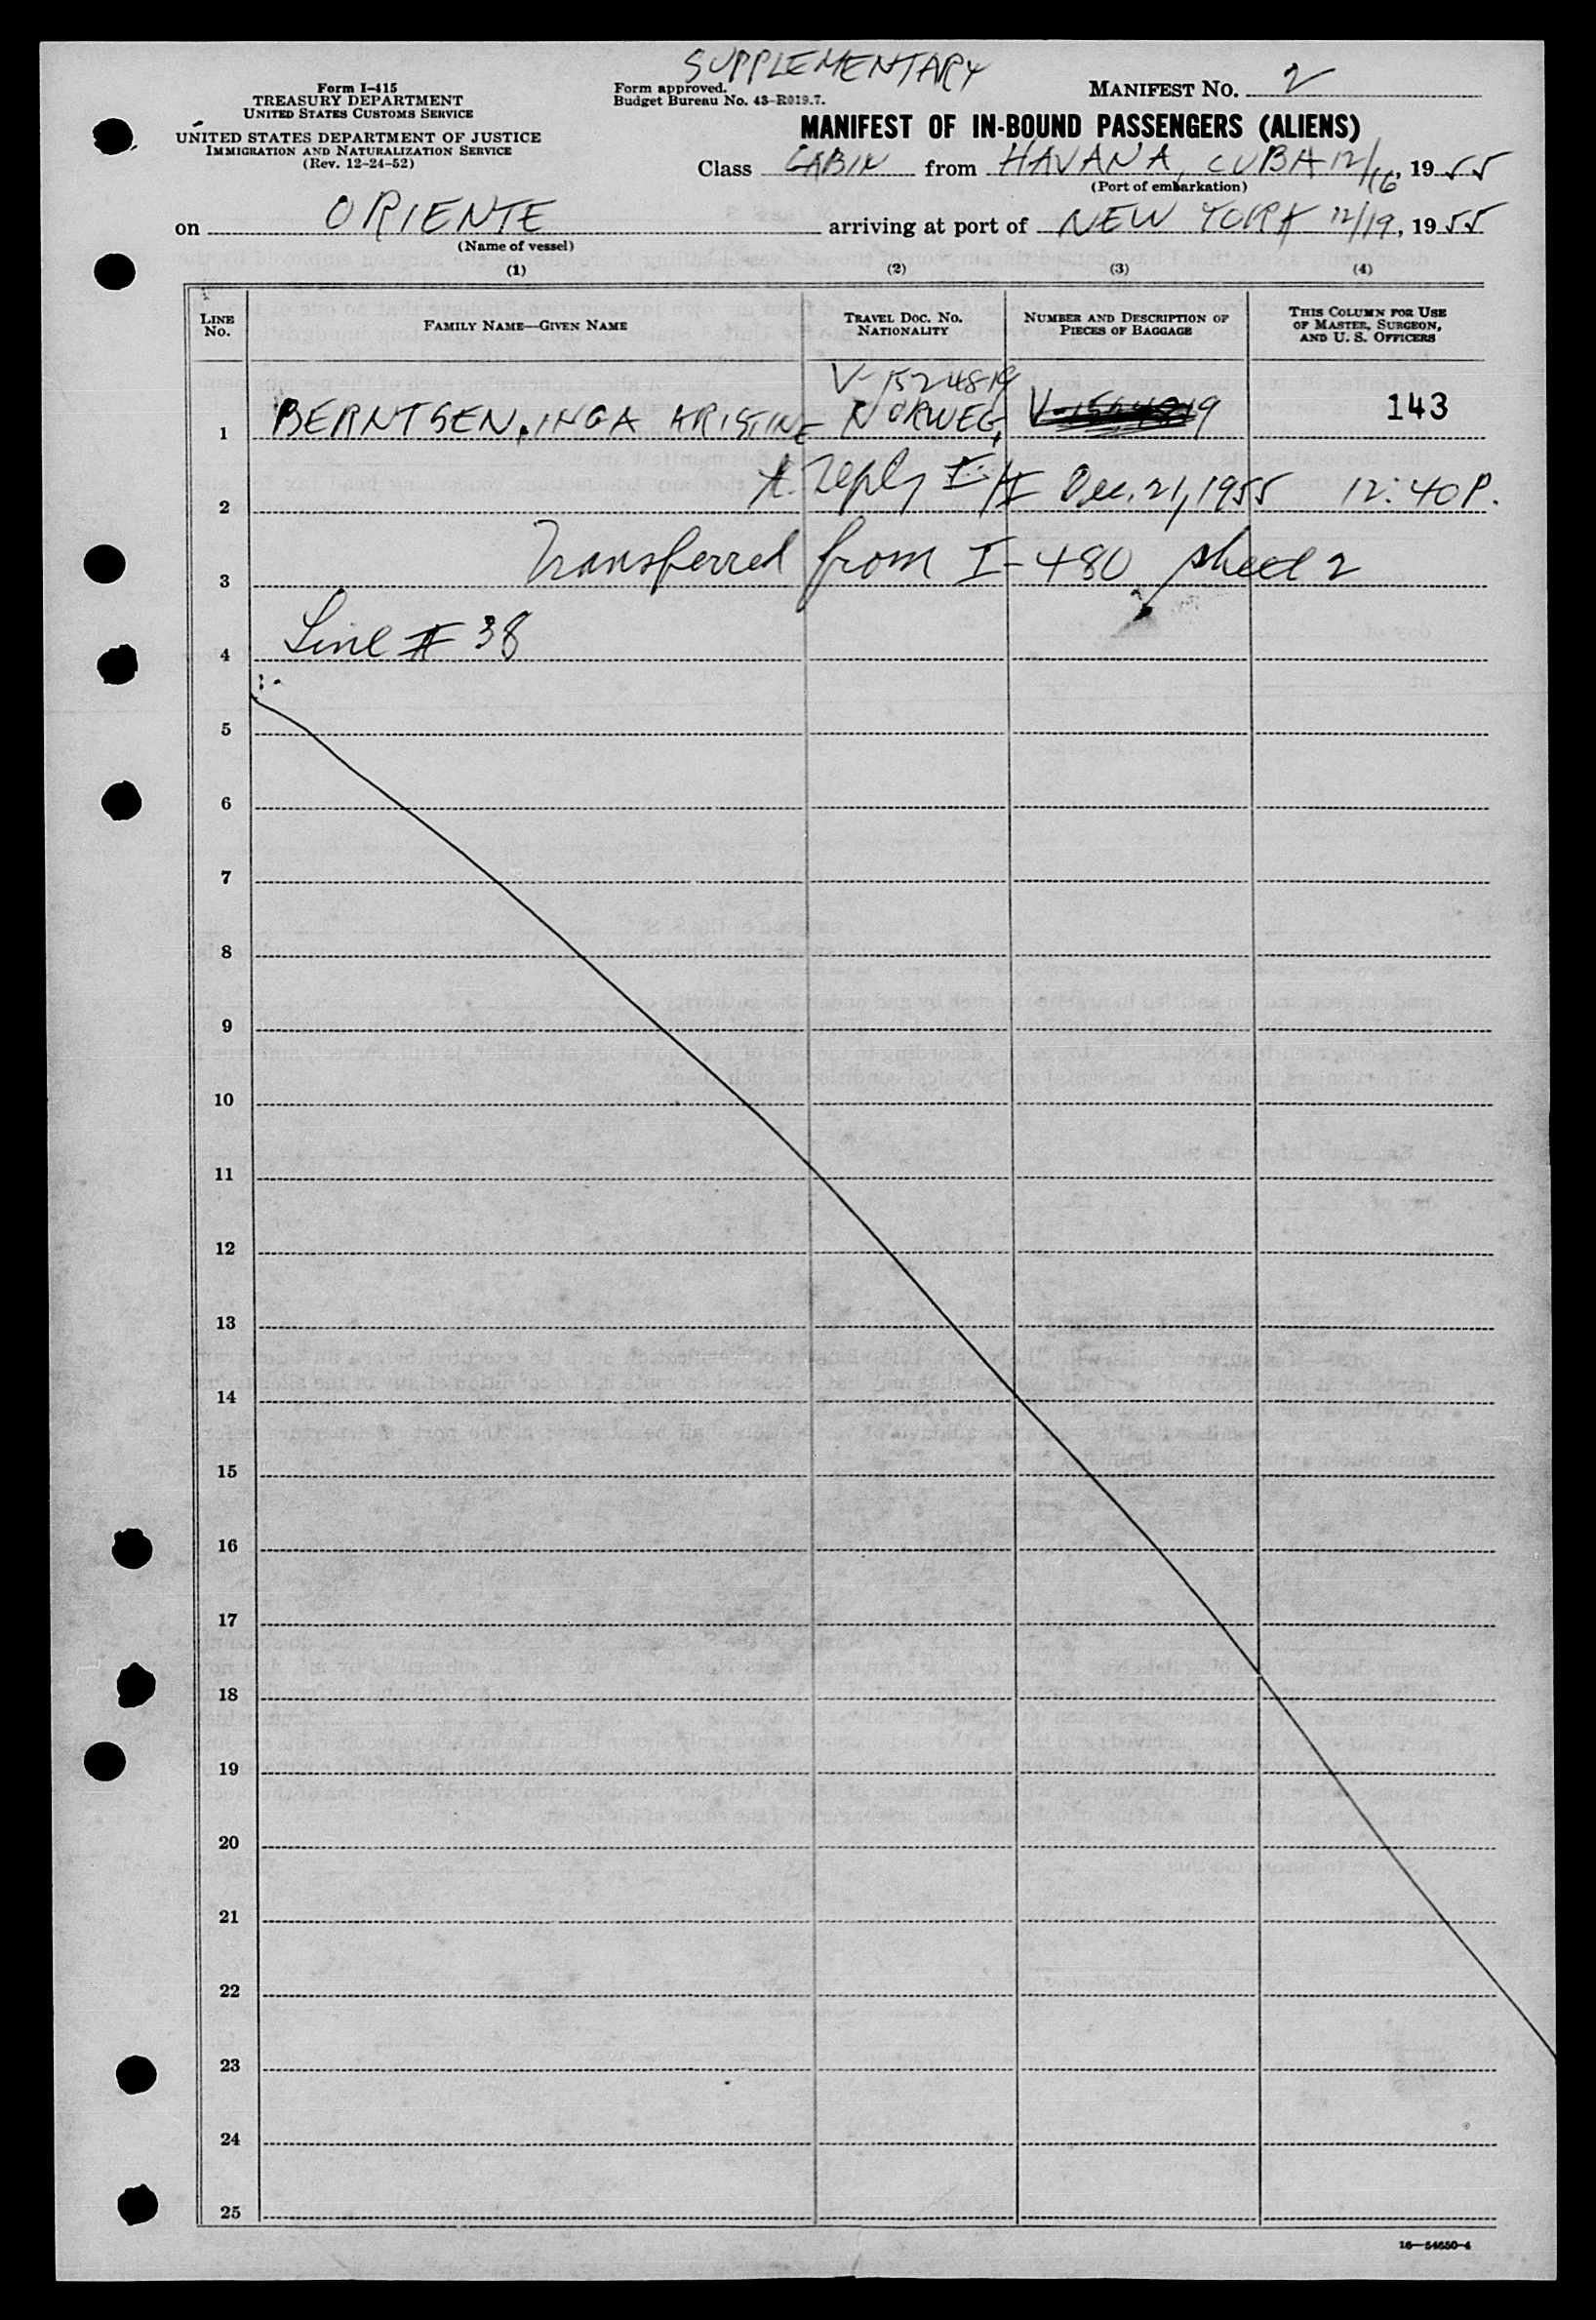 SUPPLEMENTARY
Form I-415
TREASURY DEPARTMENT
UNITED STATES CUSTOMS SERVICE
UNITED STATES DEPARTMENT OF JUSTICE
IMMIGRATION AND NATURALIZATION SERVICE
(Rev. 12-24-52)
Form approved.
Budget Bureau No. 43-R019.7.
MANIFEST NO. 2
MANIFEST OF IN-BOUND PASSENGERS (ALIENS)
Class CABIN from HAVANA, CUBA 12/16, 1955
(Port of embarkation)
on ORIENTE arriving at port of NEW YORK 12/19, 1955
(Name of vessel)
(1) (2) (3) (4)
LINE No. FAMILY NAME—GIVEN NAME TRAVEL DOC. NO. NATIONALITY NUMBER AND DESCRIPTION OF PIECES OF BAGGAGE THIS COLUMN FOR USE OF MASTER, SURGEON, AND U. S. OFFICERS
V-1524819
1 BERNTSEN, INGA KRISTINE NORWEG. 143
2 Dec. 21, 1955 12:40 P.
3 Transferred from I-480 sheet 2
4 Line # 38
5
6
7
8
9
10
11
12
13
14
15
16
17
18
19
20
21
22
23
24
25
16—54650-4